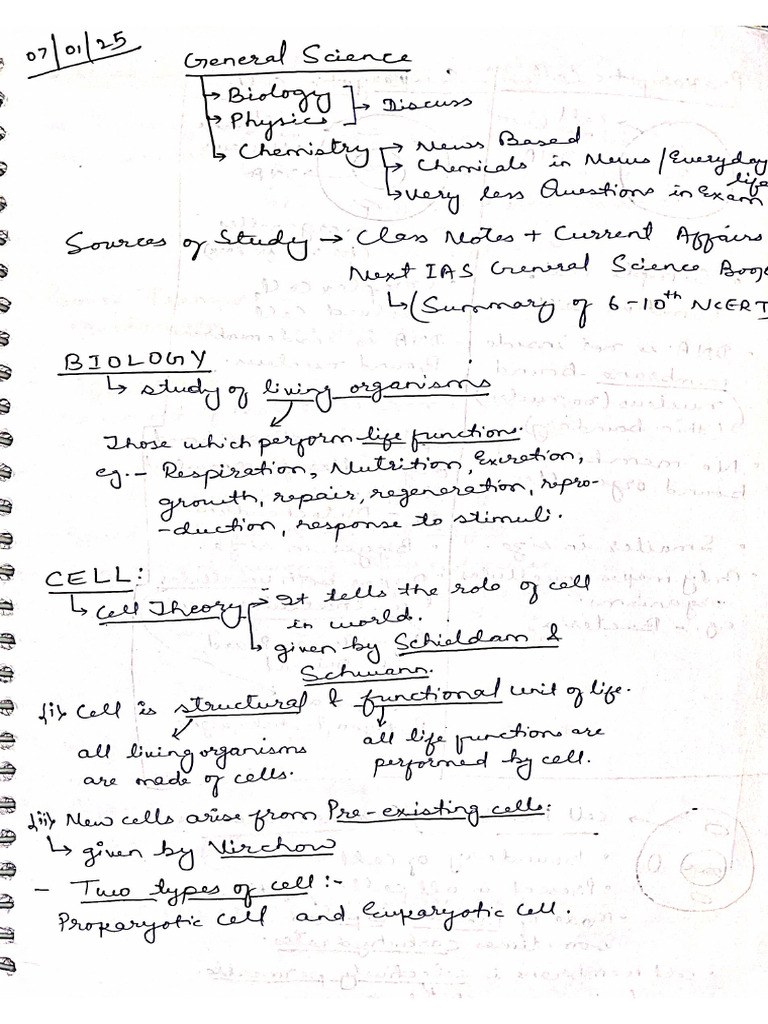 07/01/25
General Science
→ Biology
→ Physics → Discuss
→ Chemistry → News Based
→ Chemicals in News / Everyday life
→ Very less Questions in Exam
Sources of Study → Class Notes + Current Affairs
Next IAS General Science Book
↳ (Summary of 6-10th NCERT
BIOLOGY
↳ study of living organisms
Those which perform life functions.
eg.- Respiration, Nutrition, Excretion,
growth, repair, regeneration, repro-
-duction, response to stimuli.
CELL:
↳ Cell Theory → It tells the role of cell
in world.
↳ given by Schieldam &
Schwann.
(i) Cell is structural & functional unit of life.
all living organisms
are made of cells.
all life functions are
performed by cell.
(ii) New cells arise from Pre-existing cells:
↳ given by Virchow
- Two types of cell:-
Prokaryotic cell and Eukaryotic cell.